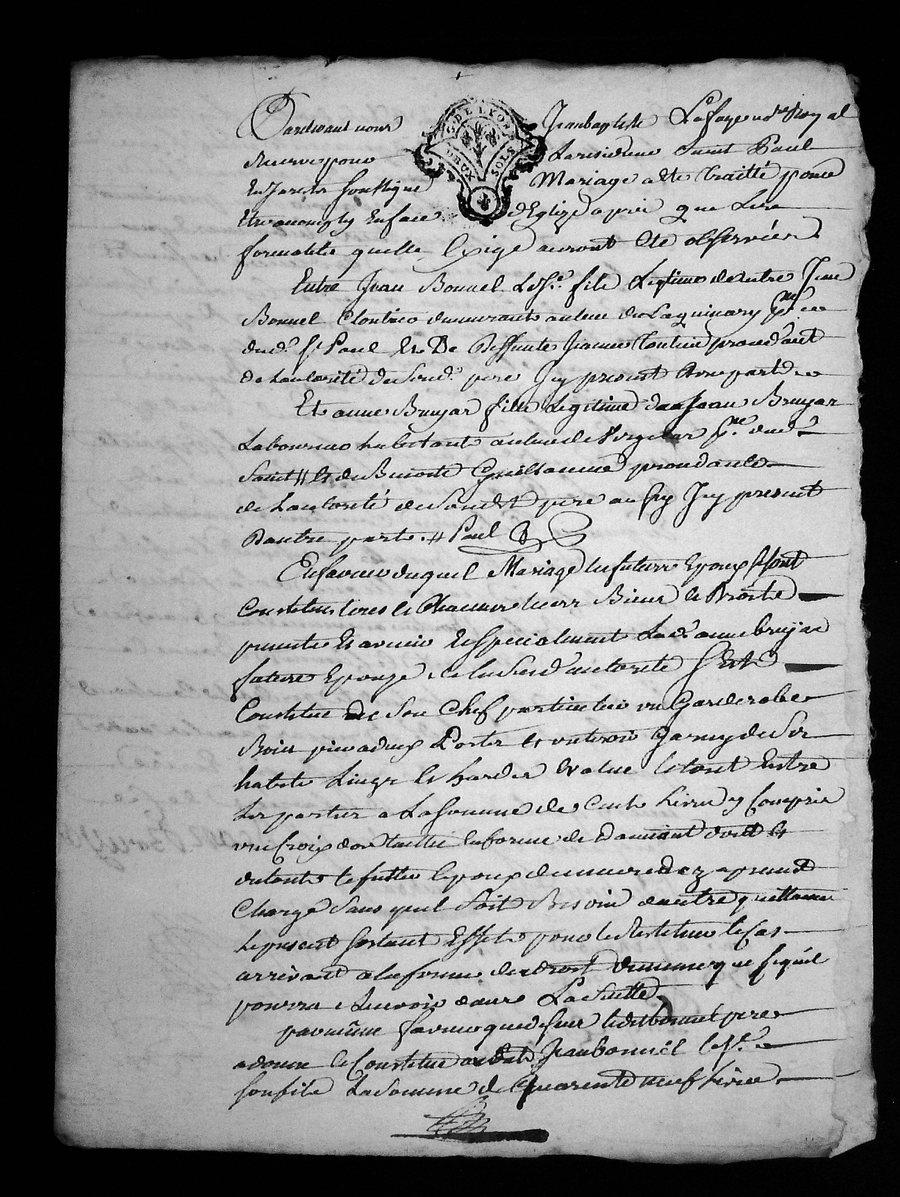 Pardevant nous Jean baptiste Lafaye no.re Royal
Reservé pour La residence Saint Paul
En Jarets soussigné Mariage a été traitté pour
Etre accomply En face d'Eglise apres que Les
formalités quelle Exige auront été observées
G. DE LYON
DEUX SOLS
Entre Jean Bonnel fils Legitime de autre Jean
Bonnel demeurant au lieu de Laquinary p.sse
dud. S.t Paul Et De deffunte Jeanne procédant
de Lautorité dud. pere Jcy present d'une part
Et anne Bruyas fille Legitime de Jean Bruyas
Laboureur habitant au lieu de p.sse dud.
Saint # Et de Benoite Guillaume procedante
de Lautorité de Sond. pere aussy Jcy present
Dautre part. # Paul
En faveur duquel Mariage les futurs Epoux se sont
Constitués tous Et Chacuns leurs Biens Et Droits
presents Et avenir Et specialement Lad. anne bruyas
future Epouze de la susd. autorité s'est
Constitué de son Chef particulier un Garderobe
Bois pin a deux Portes Et un tiroir Garny de Ses
habits Linge Et hardes Evalué le tout Entre
Les parties a La somme de Cent Livres y Compris
une Croix d'or taillée En forme de diamant dont Et
du tout le futur Epoux demeure dez a present
Chargé Sans quil Soit Besoin d'autre quittance
le present sortant Effet pour le Restituer le Cas
arrivant a la forme du droit de meme que ce quil
pourra Recevoir dans La Suitte
par meme faveur que dessus led. bonnel pere
a donné Et Constitué aud. Jean bonnel
son fils La Somme de Quarente neuf Livres